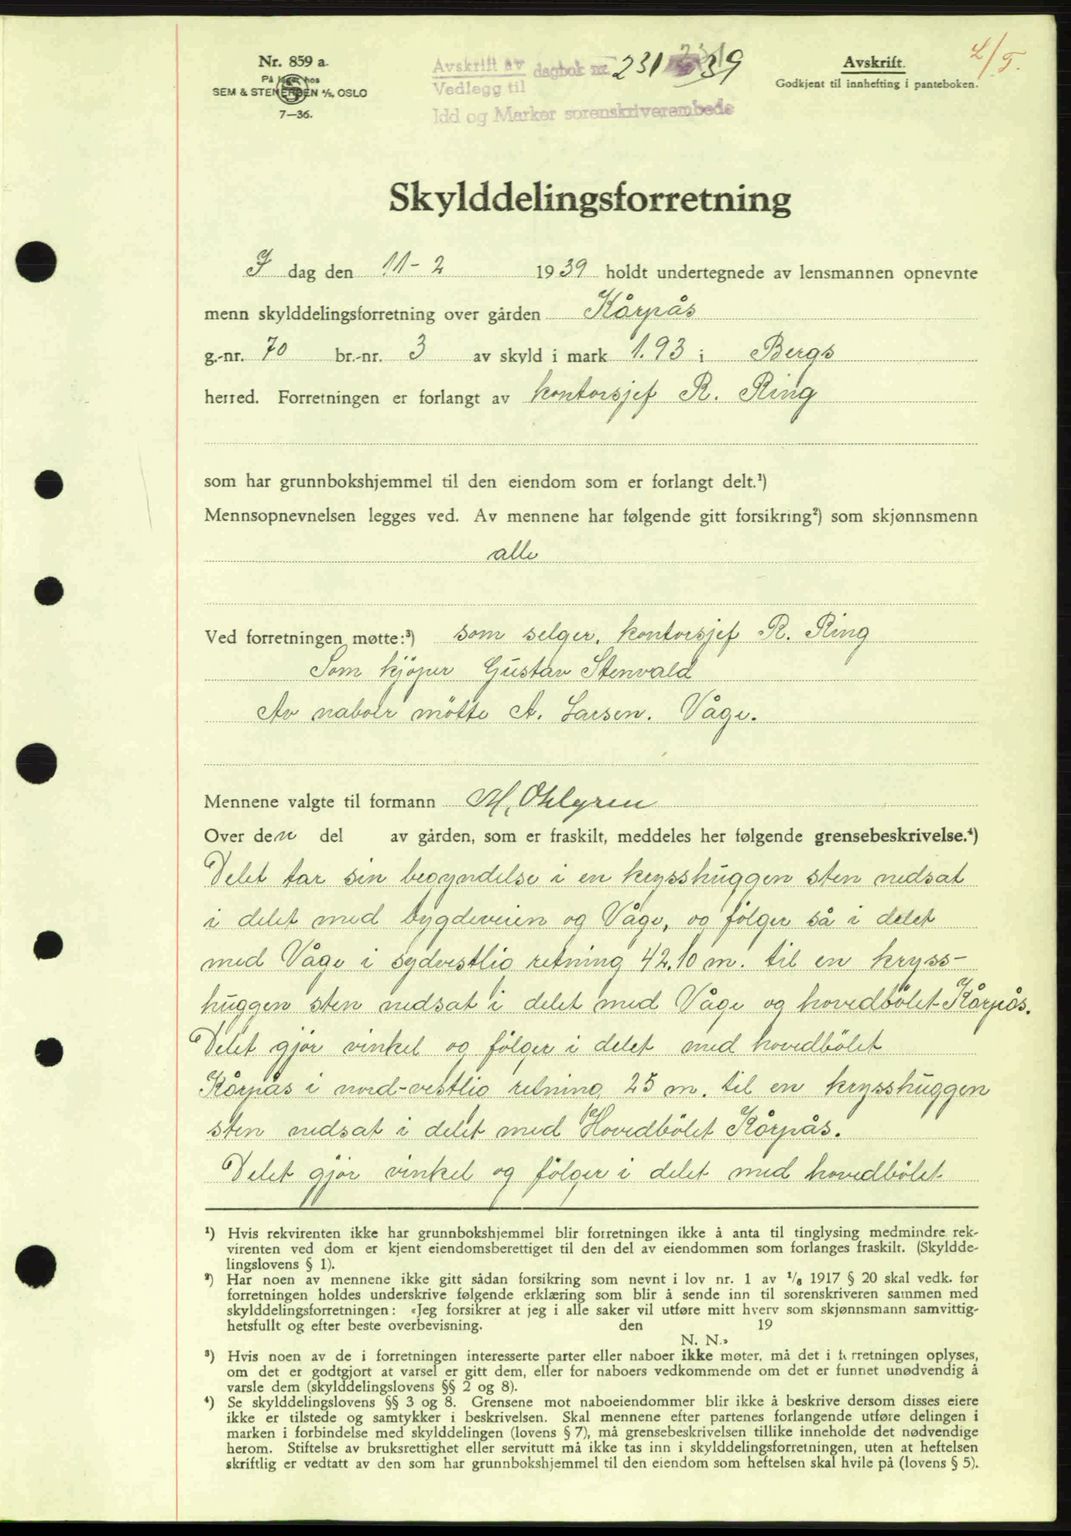 Nr. 859 a.
SEM & STENERSEN A/S, OSLO
7—36.
Avskrift av dagbok nr. 231 39
Vedlegg til
Idd og Marker sorenskriverembede
Avskrift.
Godkjent til innhefting i panteboken.
Skylddelingsforretning
I dag den 11-2 1939 holdt undertegnede av lensmannen opnevnte
menn skylddelingsforretning over gården Kårpås
g.-nr. 70 br.-nr. 3 av skyld i mark 1.93 i Bergs
herred. Forretningen er forlangt av kontorsjef R. Ring
som har grunnbokshjemmel til den eiendom som er forlangt delt.¹)
Mennsopnevnelsen legges ved. Av mennene har følgende gitt forsikring²) som skjønnsmenn
alle
Ved forretningen møtte:³) som selger, kontorsjef R. Ring
Som kjöper Gustav Stenvald
Av naboer mötte A. Larsen. Våge.
Mennene valgte til formann M. Ohlgren
Over den del av gården, som er fraskilt, meddeles her følgende grensebeskrivelse.⁴)
Delet tar sin begyndelse i en krysshuggen sten nedsat
i delet med bygdeveien og Våge, og fölger så i delet
med Våge i sydvestlig retning 42.10 m. til en kryss-
huggen sten nedsat i delet med Våge og hovedbölet Kårpås.
Delet gjör vinkel og fölger i delet med hovedbölet
Kårpås i nord-vestlig retning 25 m. til en krysshuggen
sten nedsat i delet med Hovedbölet Kårpås.
Delet gjör vinkel og fölger i delet med hovedbölet
¹) Hvis rekvirenten ikke har grunnbokshjemmel blir forretningen ikke å anta til tinglysing medmindre rek-
virenten ved dom er kjent eiendomsberettiget til den del av eiendommen som forlanges fraskilt. (Skyldde-
lingslovens § 1).
²) Har noen av mennene ikke gitt sådan forsikring som nevnt i lov nr. 1 av 1/6 1917 § 20 skal vedk. før
forretningen holdes underskrive følgende erklæring som blir å sende inn til sorenskriveren sammen med
skylddelingsforretningen: «Jeg forsikrer at jeg i alle saker vil utføre mitt hverv som skjønnsmann samvittig-
hetsfullt og efter beste overbevisning. den 19
N. N.»
³) Hvis noen av de i forretningen interesserte parter eller naboer ikke møter, må det i forretningen oplyses,
om det er godtgjort at varsel er gitt dem, eller for naboers vedkommende om det er funnet unødvendig å
varsle dem (skylddelingslovens §§ 2 og 8).
⁴) Se skylddelingslovens §§ 3 og 8. Grensene mot naboeiendommer blir ikke å beskrive dersom disses eiere
ikke er tilstede og samtykker i beskrivelsen. Skal mennene efter partenes forlangende utføre delingen i
marken i forbindelse med skylddelingen (lovens § 7), må grensebeskrivelsen tillike inneholde det nødvendige
herom. Stiftelse av bruksrettighet eller servitutt må ikke tas inn i skylddelingsforretningen, uten at heftelsen
skriftlig er vedtatt av den som har grunnbokshjemmel til den eiendom som heftelsen skal hvile på (lovens § 5).